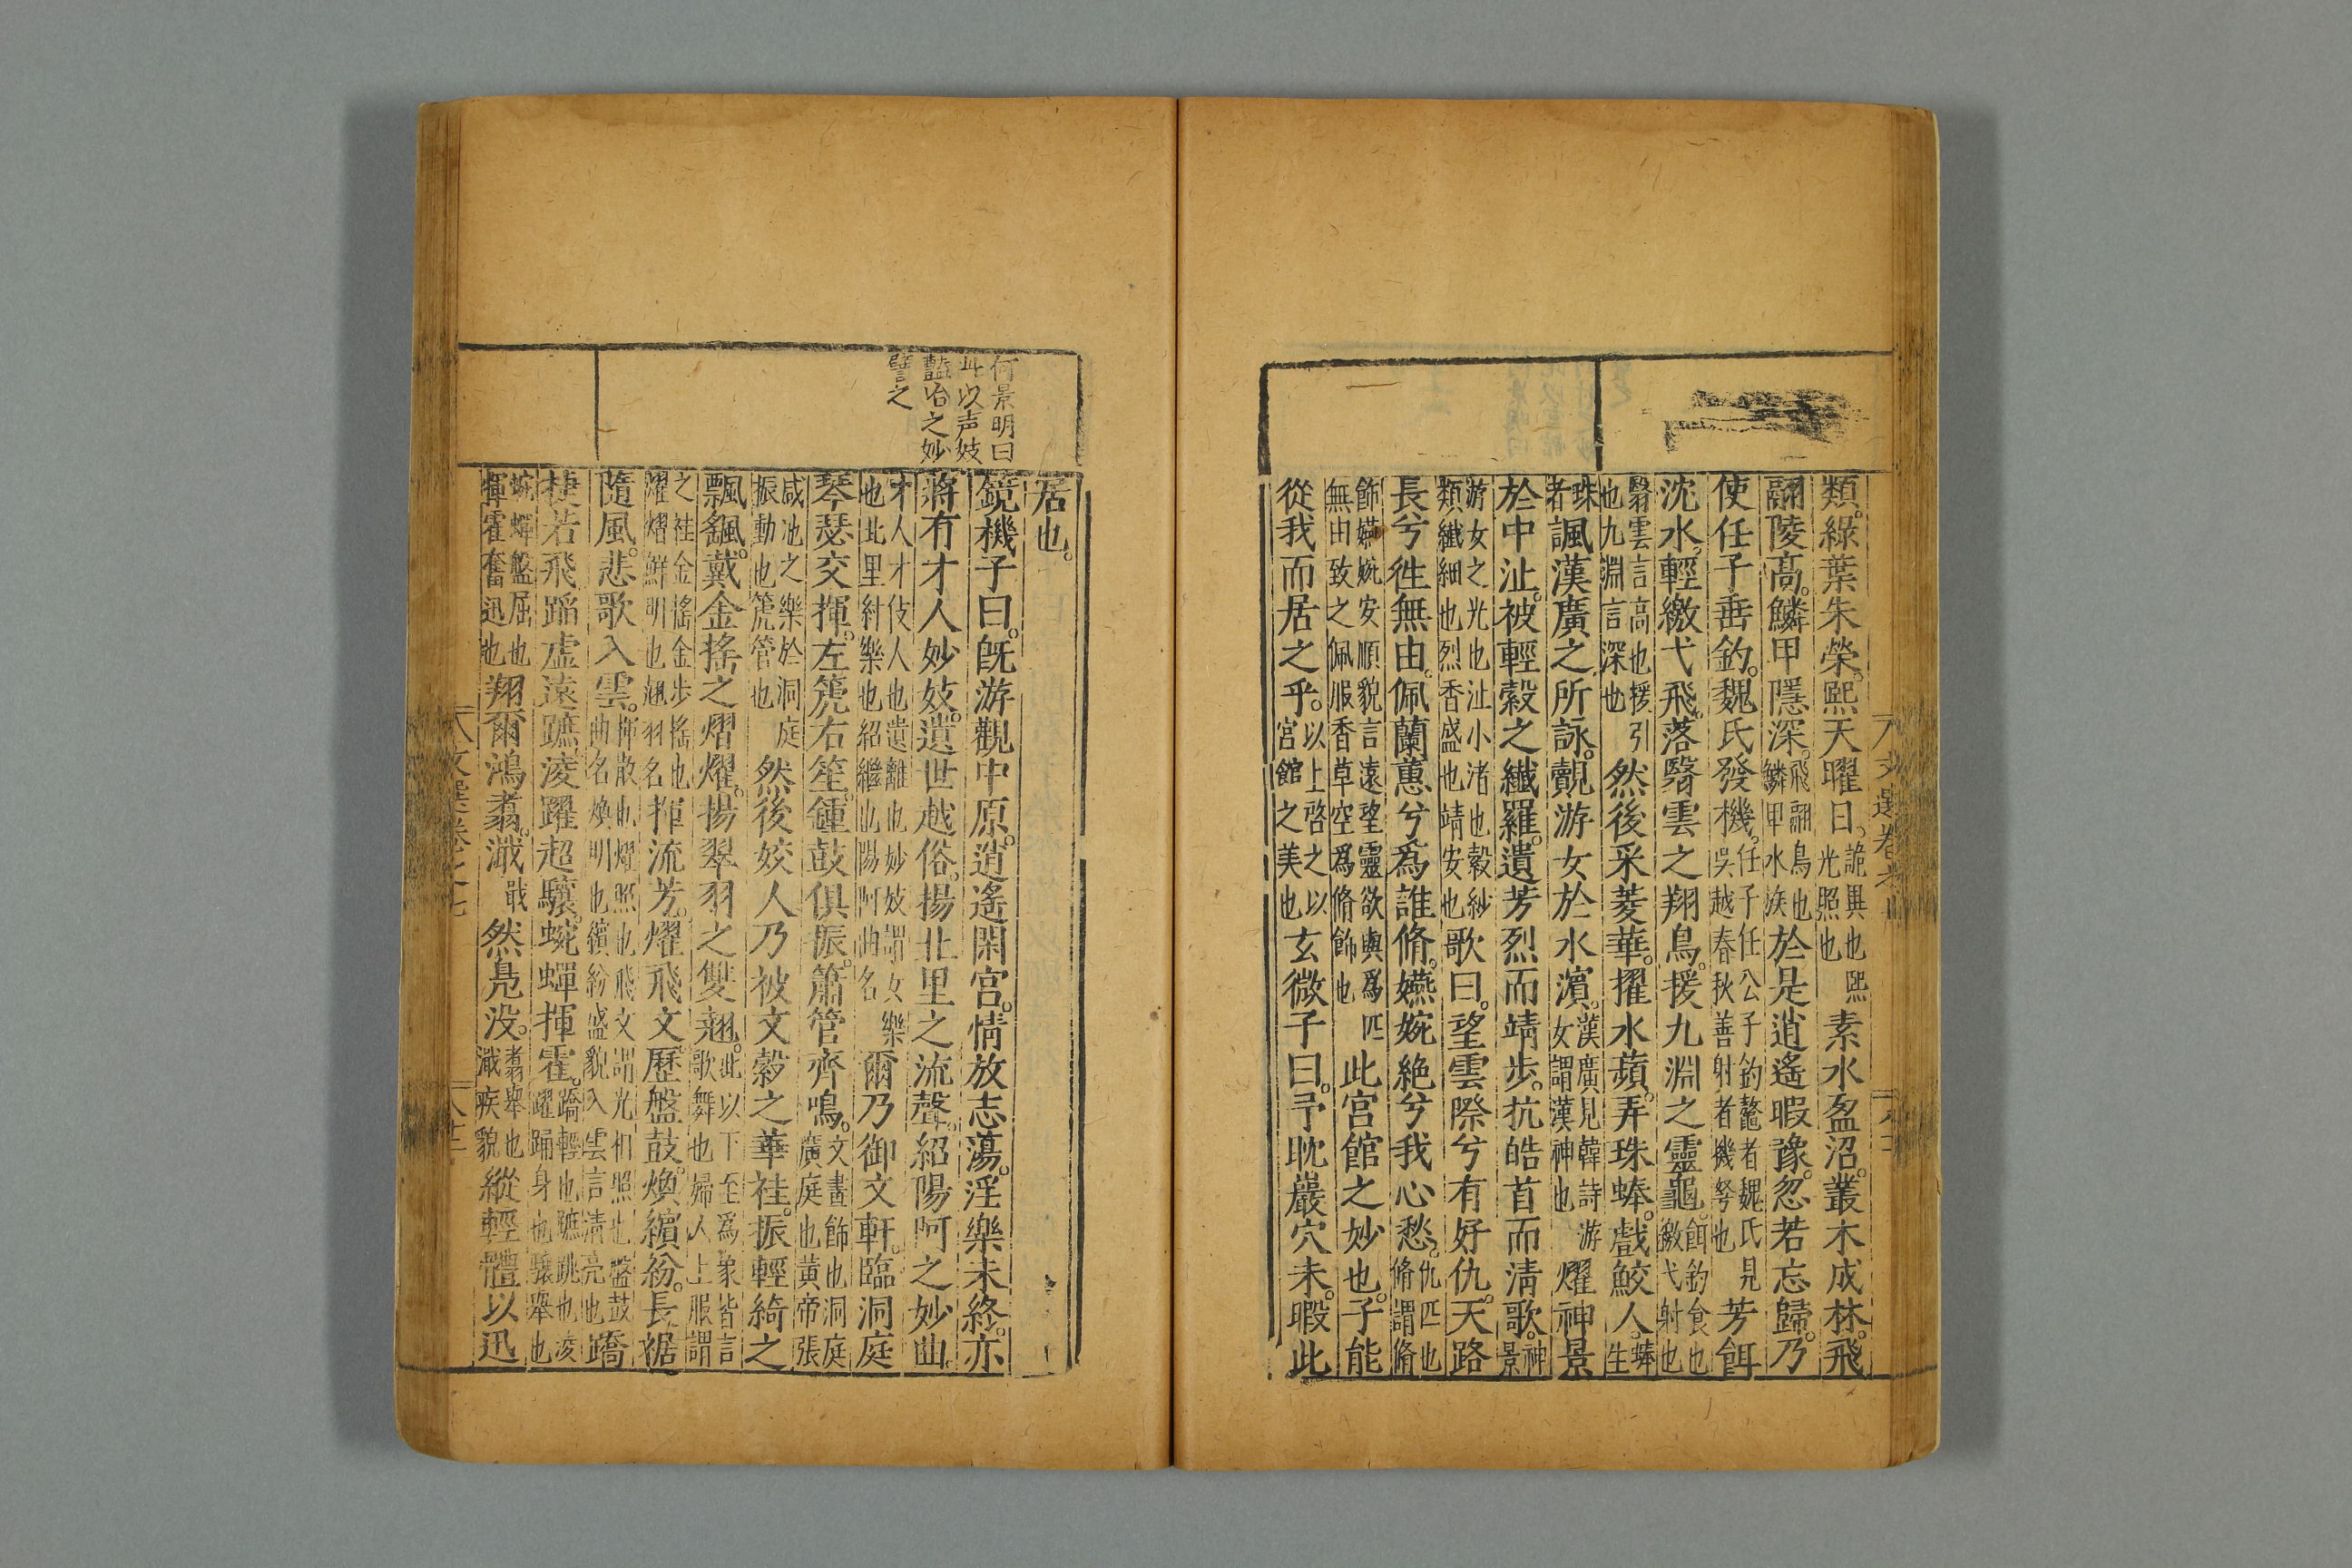 類。綠葉朱榮。熙天曜日。詭異也熙光照也素水盈沼。叢木成林。飛
翮陵高。鱗甲隱深。飛翮鳥也鱗甲水族於是逍遙暇豫。忽若忘歸。乃
使任子垂釣。魏氏發機。任子任公子釣鼇者魏氏見吳越春秋善射者機弩也芳餌
沈水。輕繳弋飛。落翳雲之翔鳥。援九淵之靈龜。餌釣食也繳弋射也
翳雲言高也援引也九淵言深也然後采菱華。擢水蘋。弄珠蜯。戲鮫人。蜯生
珠者諷漢廣之所詠。覿游女於水濱。漢廣見韓詩游女謂漢神也燿神景
於中沚。被輕縠之纖羅。遺芳烈而靖步。抗皓首而清歌。神景
游女之光也沚小渚也縠紗類纖細也烈香盛也靖安也歌曰。望雲際兮有好仇。天路
長兮徃無由。佩蘭蕙兮爲誰脩。嬿婉絶兮我心愁。仇匹也脩謂脩
飾嬿婉安順貌言遠望靈欲與爲匹無由致之佩服香草空爲脩飾也此宮館之妙也。子能
從我而居之乎。以上啓之以宮館之美也玄微子曰。予耽巖穴。未暇此
居也。
何景明曰
此以声妓
豔冶之妙
譬之
鏡機子曰。旣游觀中原。逍遙閑宮。情放志蕩。淫樂未終。亦
將有才人妙妓。遺世越俗。揚北里之流聲。紹陽阿之妙曲。
才人才伎人也遺離也妙妓謂女樂也北里紂樂也紹繼也陽阿曲名爾乃御文軒。臨洞庭
琴瑟交揮。左篪右笙。鍾鼓俱振。簫管齊鳴。文畫飾也洞庭廣庭也黃帝張
咸池之樂於洞庭振動也篪管也然後姣人乃被文縠之華袿。振輕綺之
飄飖。戴金搖之熠燿。揚翠羽之雙翹。此以下至爲象皆言歌舞也婦人上服謂
之袿金搖金步搖也燿熠鮮明也翹羽名揮流芳。燿飛文。歷盤鼓。煥繽紛。長裾
隨風。悲歌入雲。揮散也燿照也飛文謂光相照也盤鼓曲名煥明也繽紛盛貌入雲言清亮也蹻
捷若飛。蹈虛遠蹠。淩躍超驤。蜿蟬揮霍。蹻輕也蹠跳也淩躍踊身也驤舉也
蜿蟬盤屈也揮霍奮迅也翔爾鴻翥。濈戢然鳧没。翥舉也濈疾貌縱輕體以迅